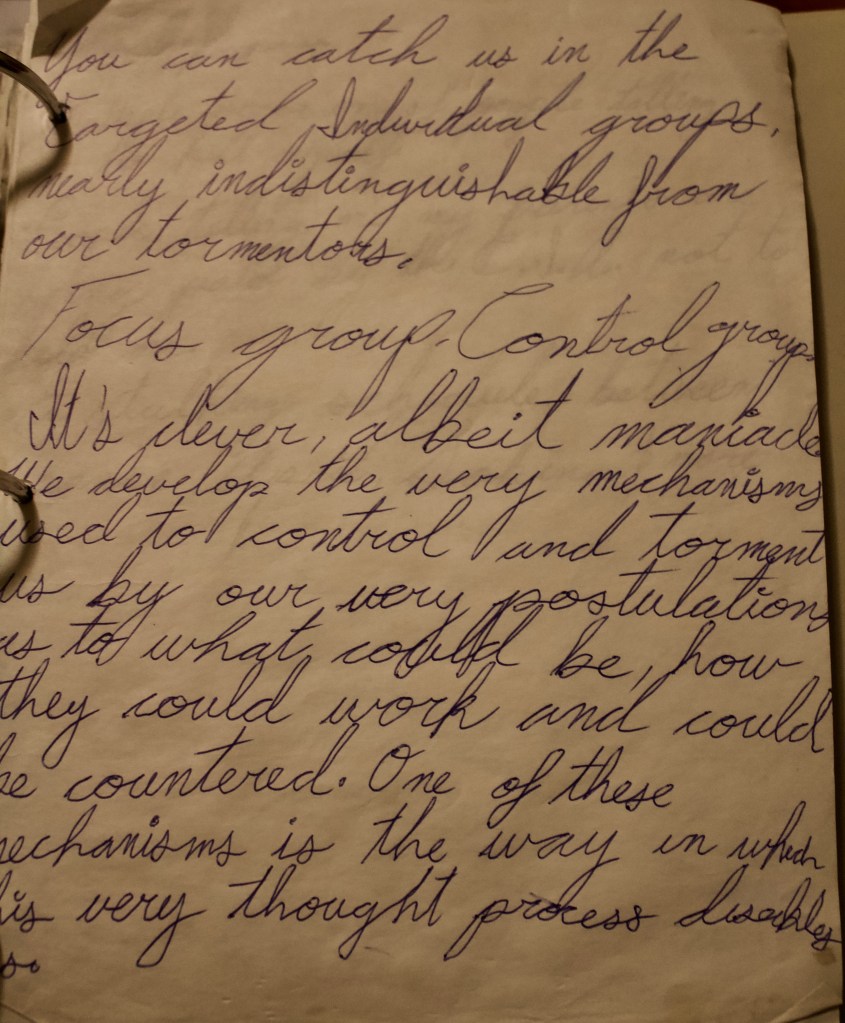 You can catch us in the
Targeted Individual groups,
nearly indistinguishable from
our tormentors.
Focus group. Control group.
It's clever, albeit maniacle
We develop the very mechanisms
used to control and torment
us by our very postulations
as to what could be, how
they could work and could
be countered. One of these
mechanisms is the way in which
his very thought process disables
s.